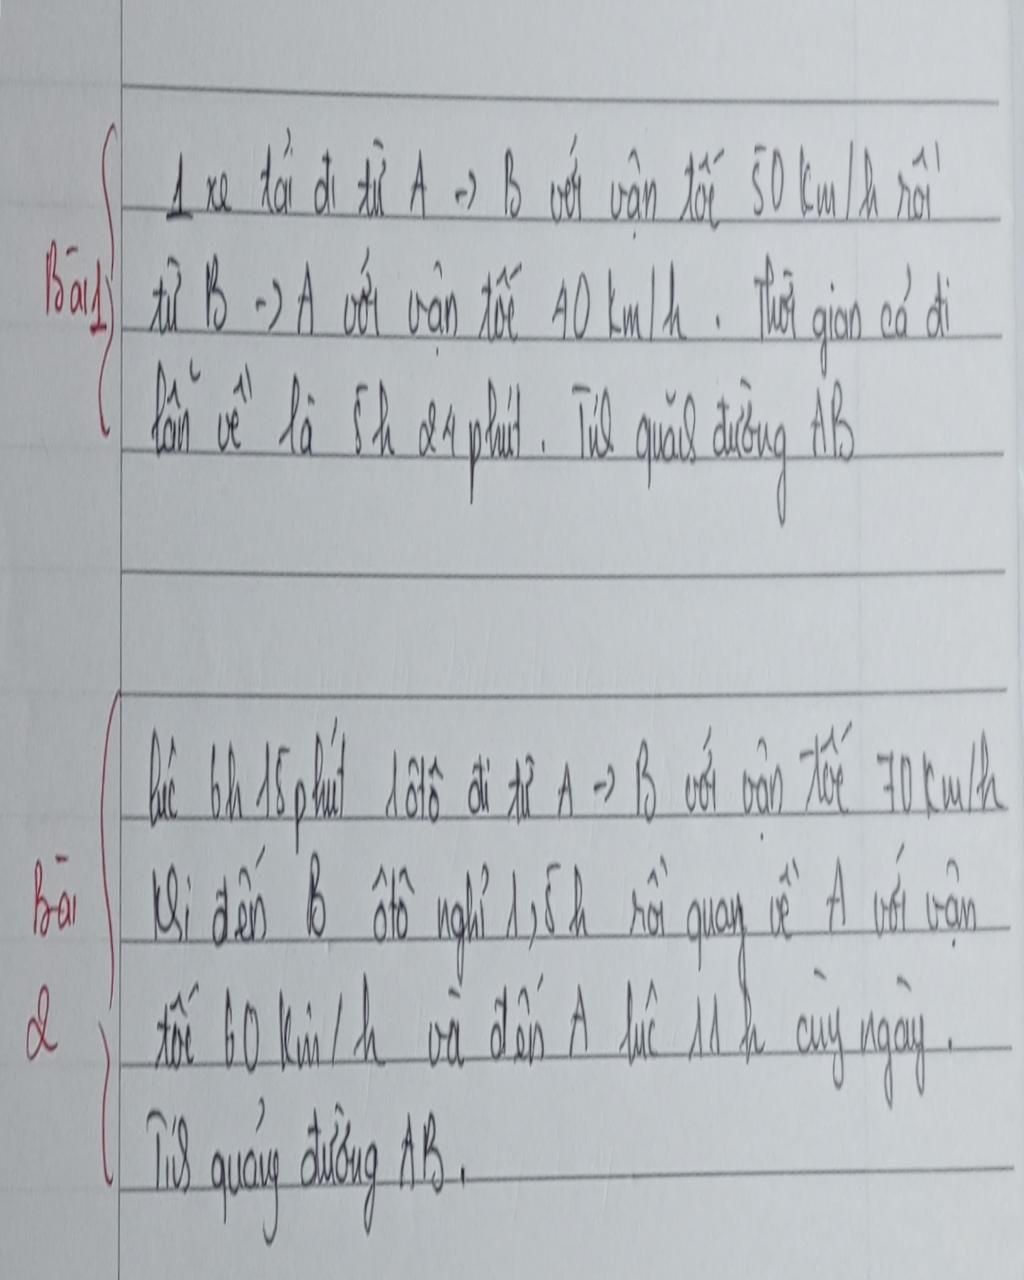 Bài 1
1 xe tải đi từ A → B với vận tốc 50 km/h rồi
từ B → A với vận tốc 40 km/h. Thời gian cả đi
lẫn về là 5h 24 phút. Tíh quãg đường AB
Bài 2
lúc 6h 15 phút 1 ôtô đi từ A → B với vận tốc 70 km/h
Khi đến B ôtô nghỉ 1,5h rồi quay về A với vận
tốc 60 km/h và đến A lúc 11h cùg ngày.
Tíh quảng đường AB.